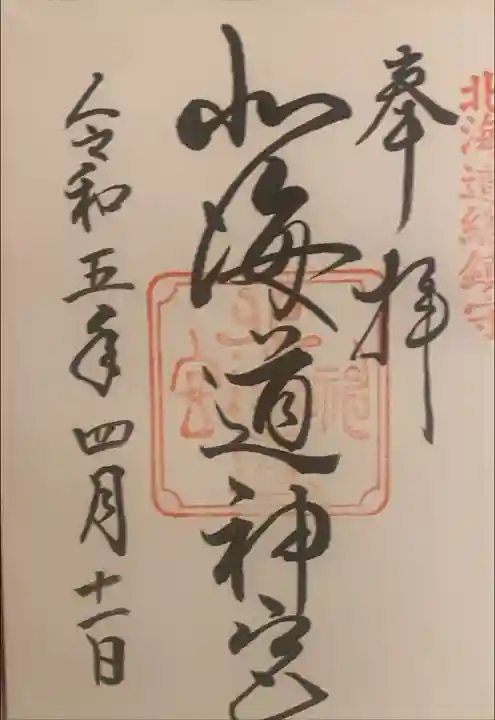 北海道総鎮守
奉拝
北海道神宮
令和五年四月十一日